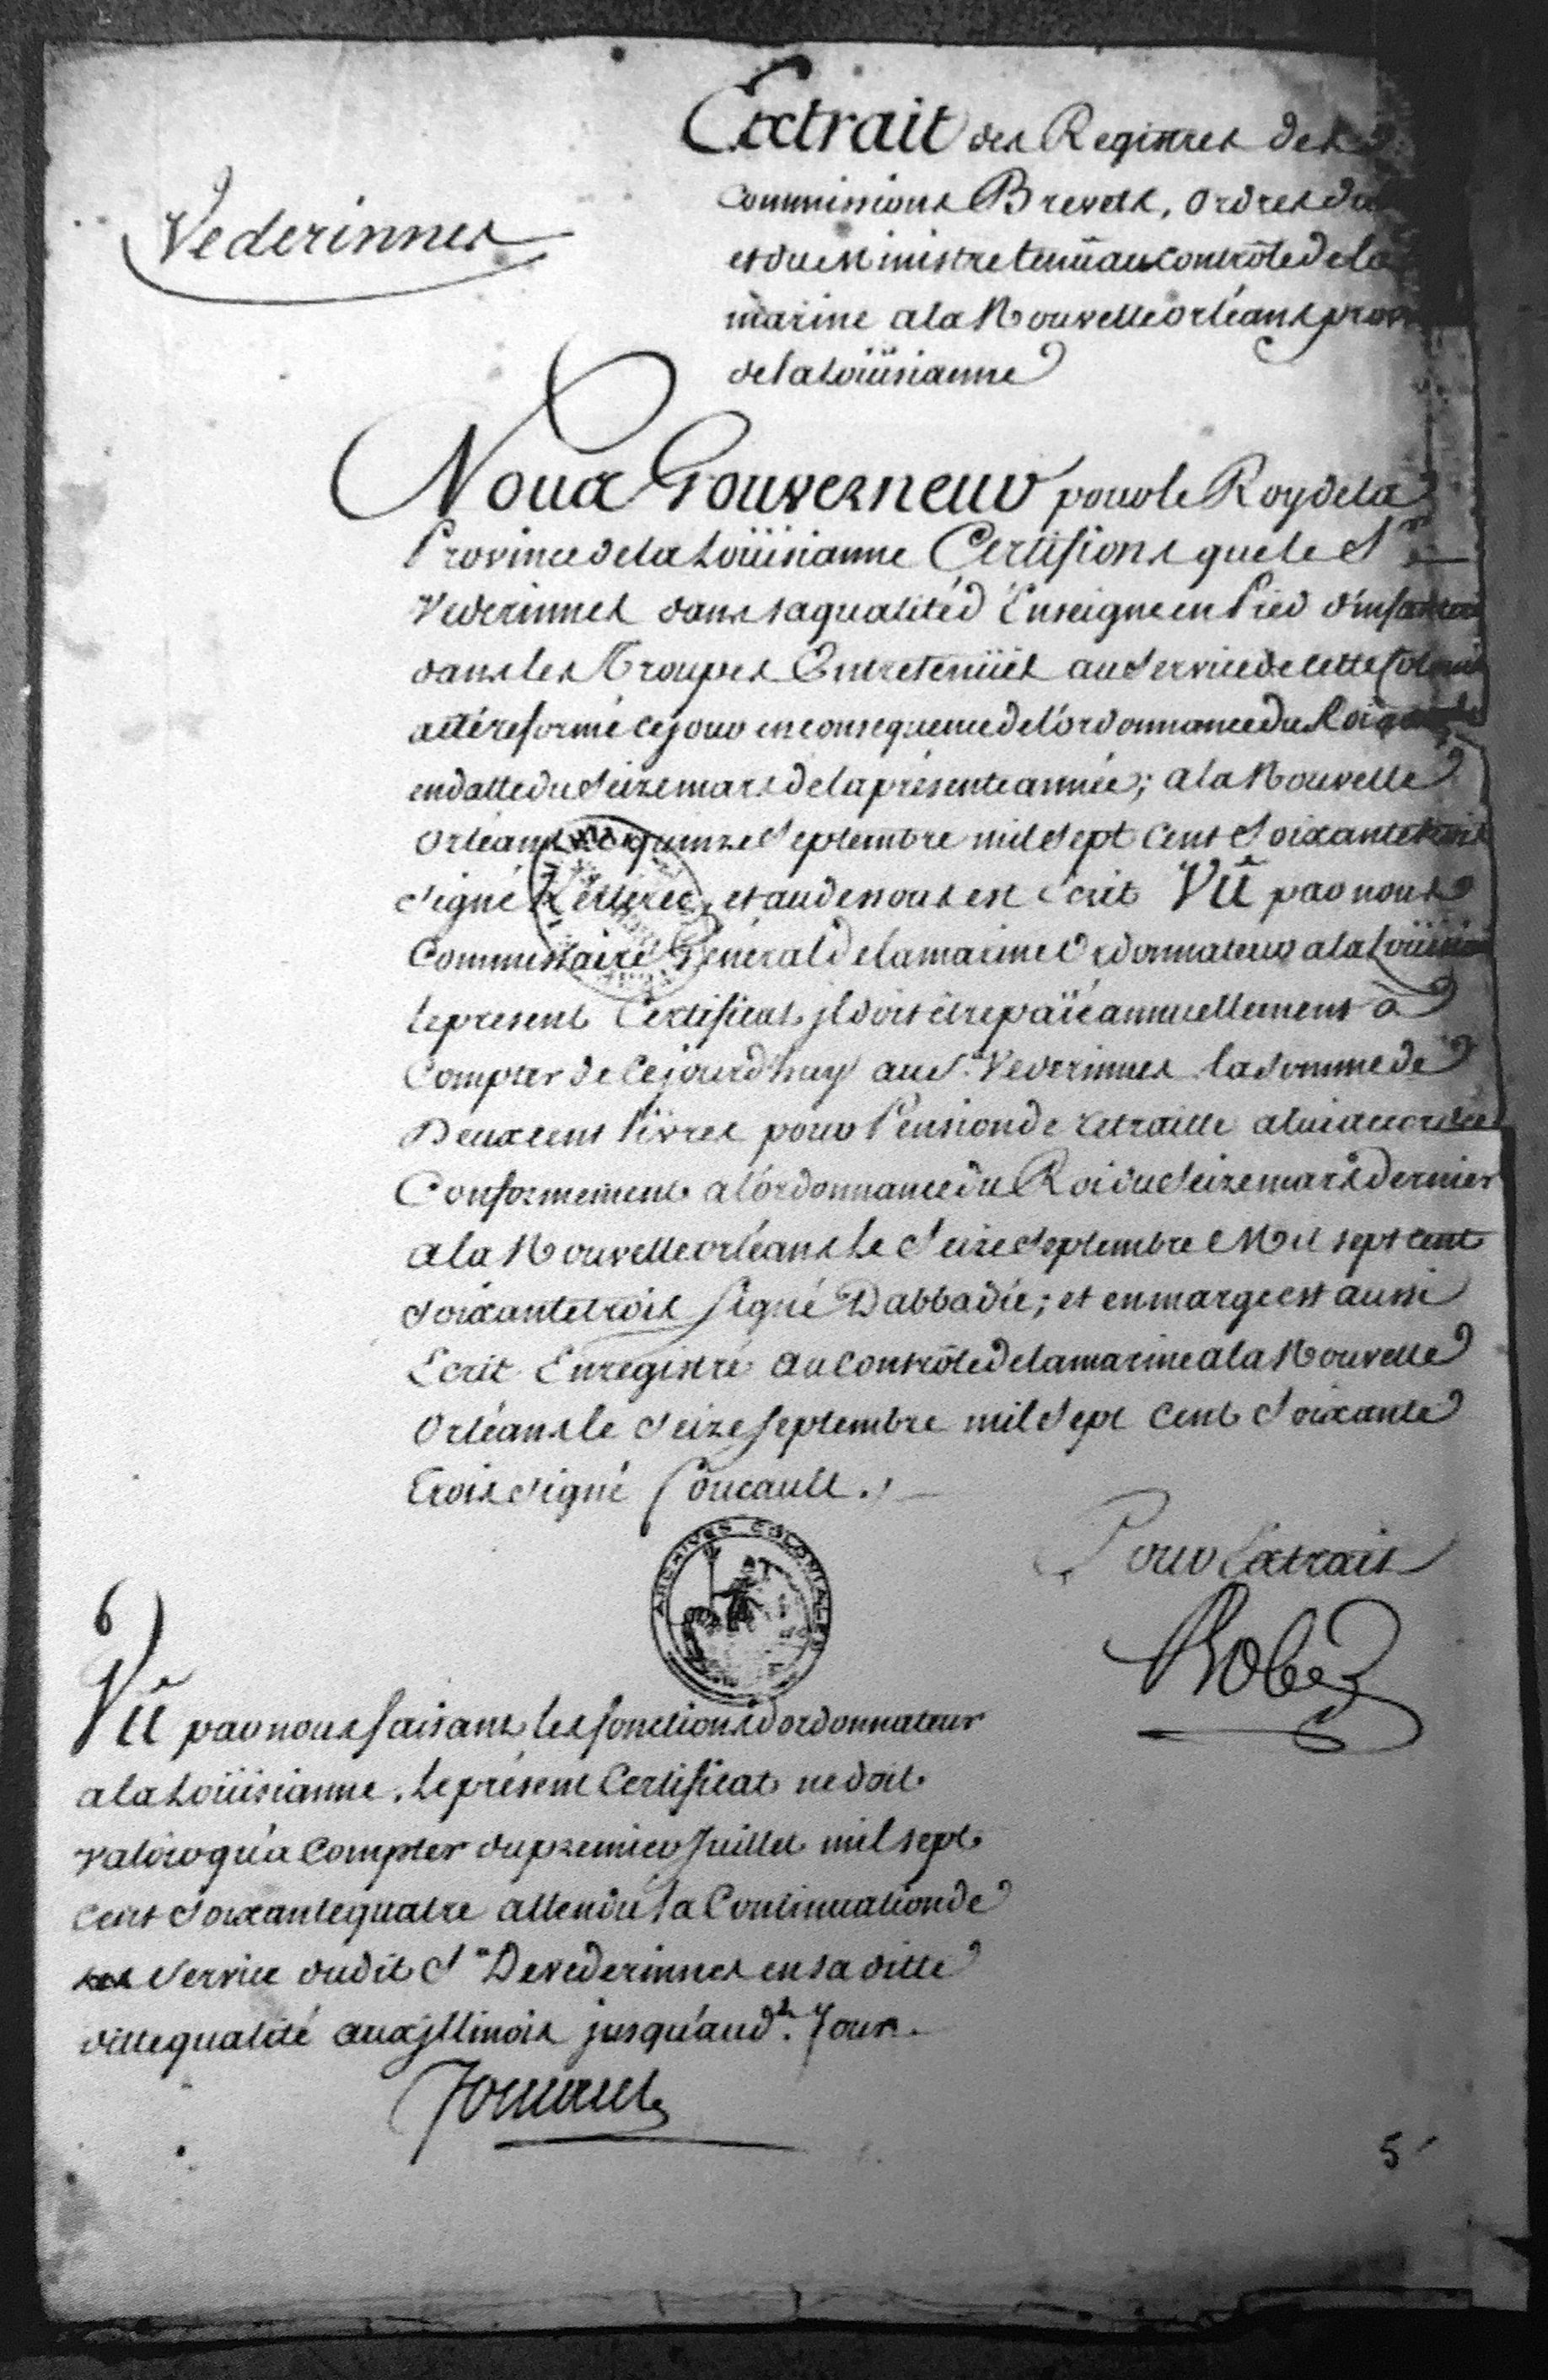 Extrait des Registres des
Commissions Brevets, ordres du
et du Ministre tenu au Contrôle de la
marine a la Nouvelle orléans prov
de la Loüisianne
Vederinnes
Nous Gouverneur pour le Roy de la
Province de la Loüisianne Certifions que le Sr
Vederinnes dans sa qualité d'Enseigne en Pied d'infanterie
dans les Troupes Entretenües au Service de cette Colonie
a été reformé ce jour en consequence de l'ordonnance du Roi
en datte du Seize mars de la présente année; a la Nouvelle
Orléans le quinze Septembre mil Sept Cent Soixante trois
Signé Kerlerec, et au dessous est écrit Vû par nous
Commissaire Général de la marine Ordonnateur a la Loüisianne
le present Certificat, il doit être païé annuellement à
Compter de Cejourd'huy au Sr. Vederinnes la Somme de
Deux cent Livres pour Pension de retraitte a lui accordée
Conformement a l'ordonnance du Roi du Seize mars dernier
a la Nouvelle orléans le Seize Septembre Mil sept cent
Soixante trois Signé Dabbadie; et en marge est aussi
Ecrit Enregistré au Contrôle de la marine a la Nouvelle
Orléans le Seize Septembre mil Sept Cent Soixante
Trois Signé Foucault./
ARCHIVES COLONIALES
Pour Extrait
Bobé
Vû par nous faisant les fonctions d'ordonnateur
a la Loüisianne. Le présent Certificat ne doit
valoir qu'a Compter du premier Juillet mil sept
Cent Soixante quatre attendu la Continuation de
Service dudit Sr Devederinnes en sa ditte
ditte qualité aux jllinois jusqu'aud.t Jour.
Foucault
5